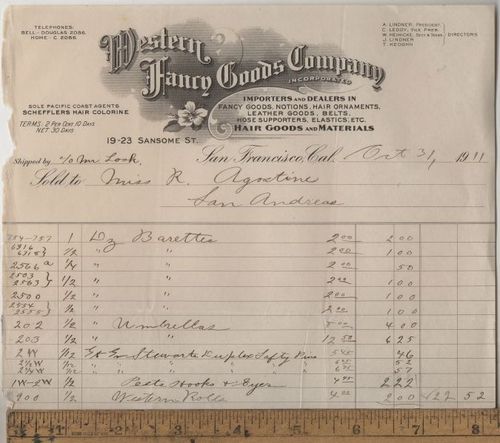 TELEPHONES:
BELL - DOUGLAS 2086.
HOME - C 2086.
Western Fancy Goods Company
INCORPORATED
A. LINDNER, PRESIDENT.
C. LEDDY, VICE PRES.
W. HEINICKE, SECY & TREAS.
J. LINDNER
T. KEOGHN
DIRECTORS
SOLE PACIFIC COAST AGENTS
SCHEFFLERS HAIR COLORINE
TERMS: 2 PER CENT 10 DAYS
NET 30 DAYS
IMPORTERS AND DEALERS IN
FANCY GOODS, NOTIONS, HAIR ORNAMENTS,
LEATHER GOODS, BELTS,
HOSE SUPPORTERS, ELASTICS, ETC.
HAIR GOODS AND MATERIALS
19-23 SANSOME ST.
Shipped by c/o Mr Look. San Francisco, Cal. Oct 31, 1911
Sold to Miss R. Agostine
San Andreas
754-757 1 Dz Barettes 2 00 2 00
6316 6318} 1/2 " " 2 00 1 00
2566 a 1/4 " " 2 00 50
2503 2563} 1/2 " " 2 00 1 00
2500 1/2 " " 2 00 1 00
2554 2555} 1/2 " " 2 00 1 00
202 1/2 " Umbrellas 8 00 4 00
203 1/2 " " 12 50 6 25
2W 1/12 Stewarts Duplex Safty Pins 5 45 46
2 1/2W 1/12 " " " " 52
3W 1/12 " " " " 57
1W-2W 1/2 Peets Hooks & Eyes 4 45 2 22
900 1/2 Western Rolls 4 00 2 00 22 52
1 2 3 4 5 6 7 8